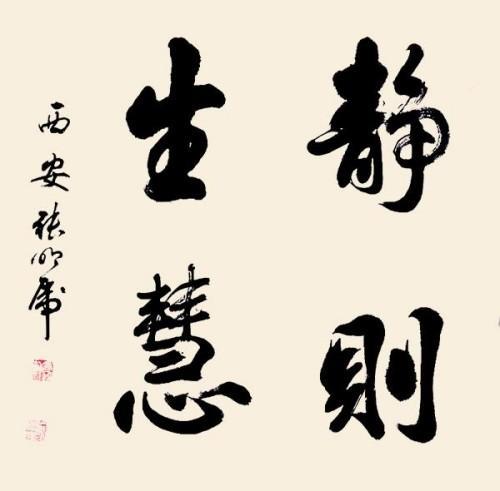 静则
生慧
西安张明虎